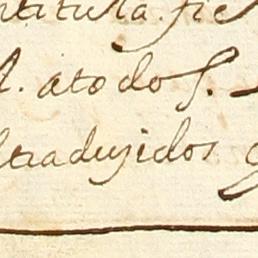 ntitula. fie
l. atodos.
traduzidos